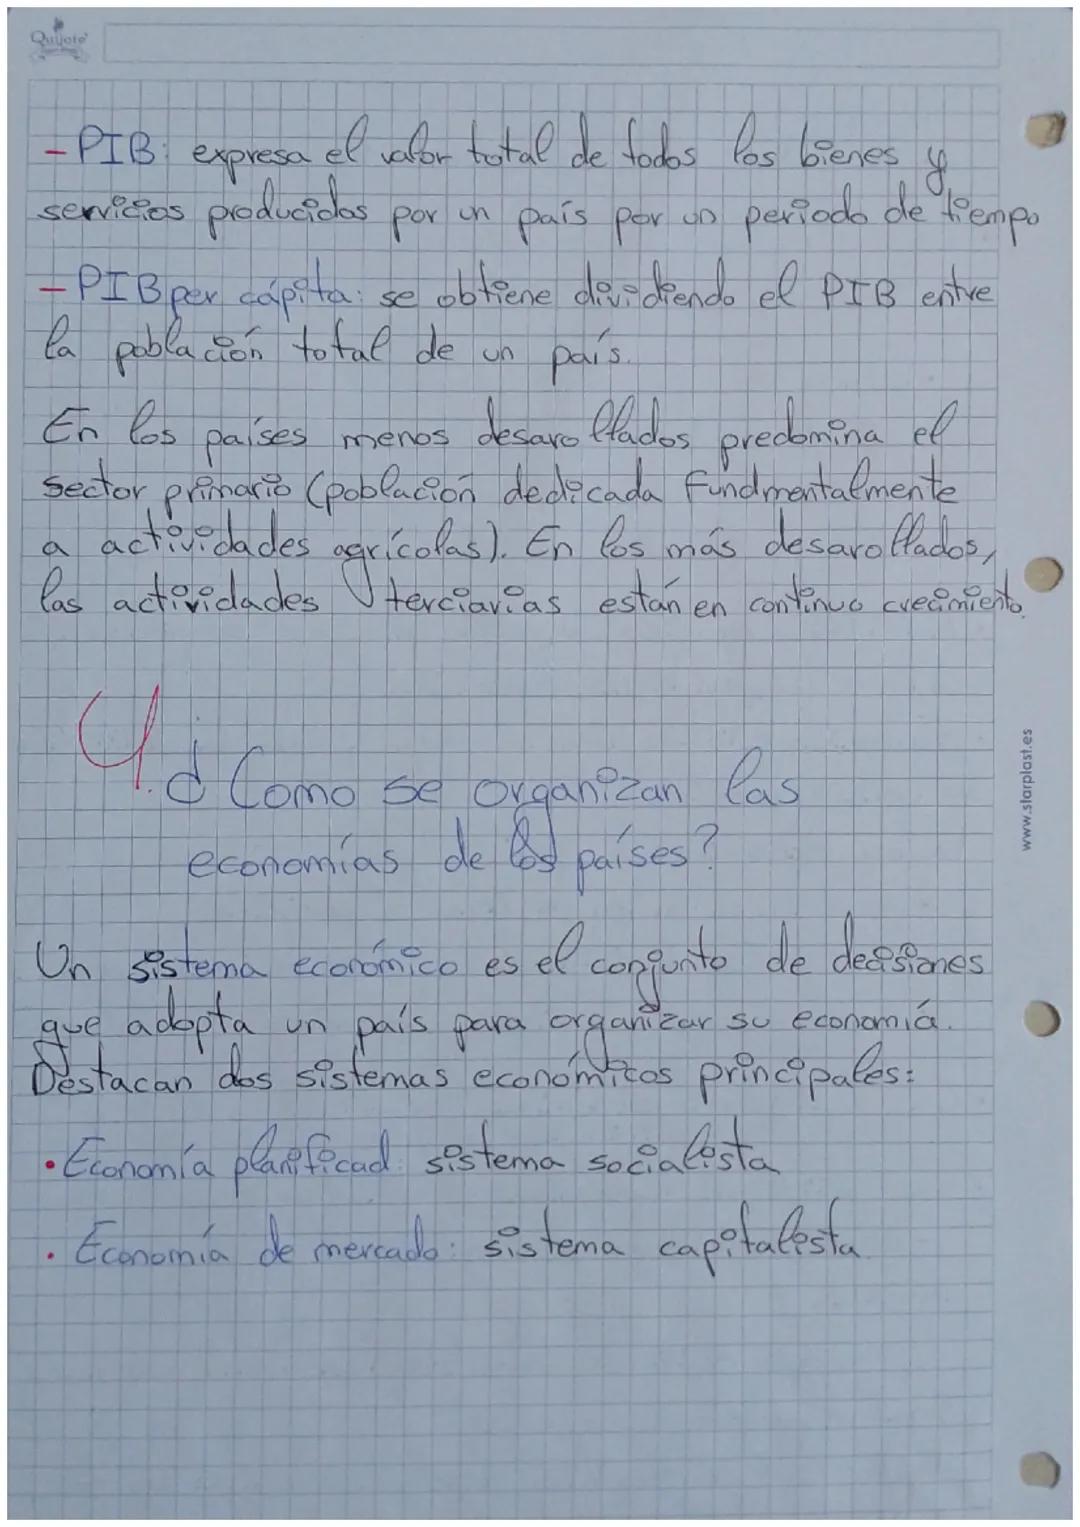 Quijote
- PIB: expresa el valor total de todos los bienes y
servicios producidos por un país por un periodo de tiempo
- PIB per cápita: se obtiene dividiendo el PIB entre
la población total de un país.
En los países menos desarollados predomina el
sector primario (población dedicada fundmentalmente
a actividades agrícolas). En los más desarollados,
las actividades terciarias están en continuo crecimiento.
4. ¿Como se organizan las
economías de los países?
Un sistema económico es el conjunto de decisiones
que adopta un país para organizar su economía.
Destacan dos sistemas económicos principales:
• Economía planificad: sistema socialista
• Economía de mercado: sistema capitalista
www.starplast.es